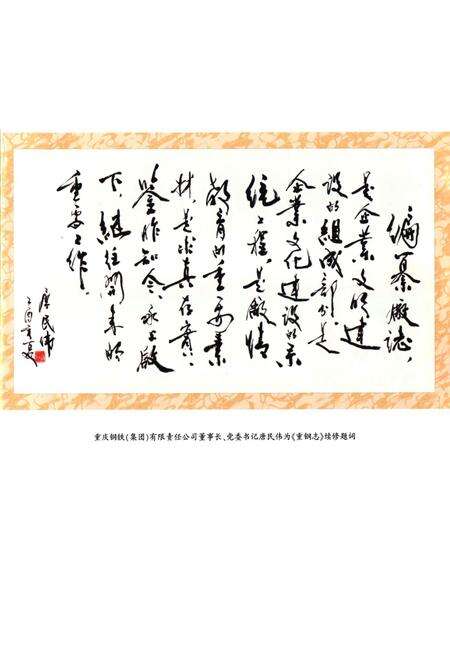 编纂厰志，
是企业文明建
设的组成部分，是
企业文化建设的系
统工程，是厰情
教育的重要素
材，是求真存实、
鉴昨知今、承上啟
下、继往开来的
重要工作。
唐民伟
重庆钢铁(集团)有限责任公司董事长、党委书记唐民伟为《重钢志》续修题词